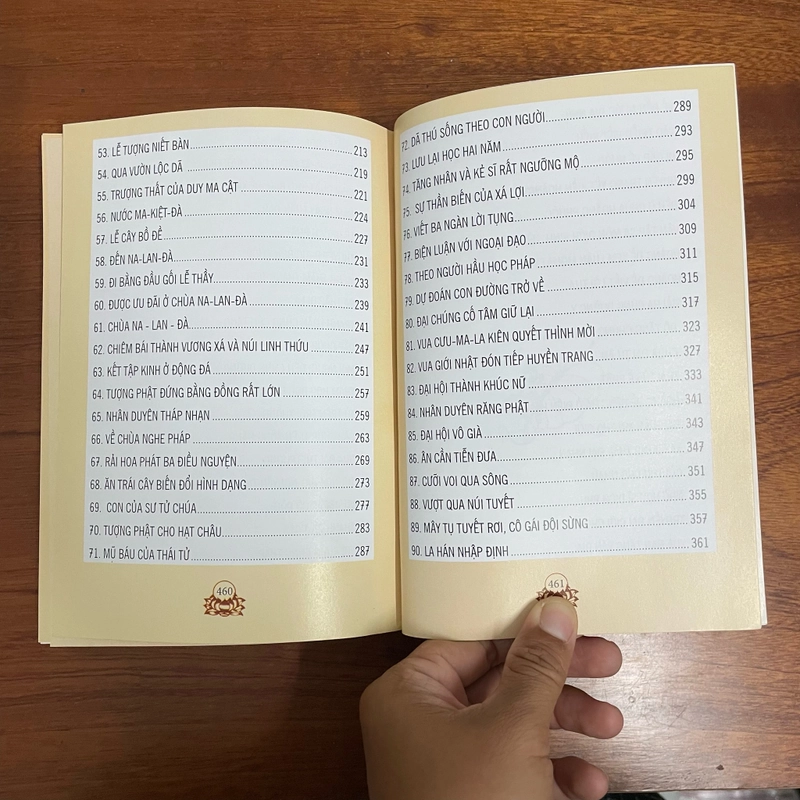 53. LỄ TƯỢNG NIẾT BÀN 213
54. QUA VƯỜN LỘC DÃ 219
55. TRƯỢNG THẤT CỦA DUY MA CẬT 221
56. NƯỚC MA-KIỆT-ĐÀ 224
57. LỄ CÂY BỒ ĐỀ 227
58. ĐẾN NA-LAN-ĐÀ 231
59. ĐI BẰNG ĐẦU GỐI LỄ THẦY 233
60. ĐƯỢC ƯU ĐÃI Ở CHÙA NA-LAN-ĐÀ 239
61. CHÙA NA - LAN - ĐÀ 241
62. CHIÊM BÁI THÀNH VƯƠNG XÁ VÀ NÚI LINH THỨU 247
63. KẾT TẬP KINH Ở ĐỘNG ĐÁ 251
64. TƯỢNG PHẬT ĐỨNG BẰNG ĐỒNG RẤT LỚN 257
65. NHÂN DUYÊN THÁP NHẠN 259
66. VỀ CHÙA NGHE PHÁP 263
67. RẢI HOA PHÁT BA ĐIỀU NGUYỆN 269
68. ĂN TRÁI CÂY BIẾN ĐỔI HÌNH DẠNG 273
69. CON CỦA SƯ TỬ CHÚA 277
70. TƯỢNG PHẬT CHO HẠT CHÂU 283
71. MŨ BÁU CỦA THÁI TỬ 287
460
72. DÃ THÚ SỐNG THEO CON NGƯỜI 289
73. LƯU LẠI HỌC HAI NĂM 293
74. TĂNG NHÂN VÀ KẺ SĨ RẤT NGƯỠNG MỘ 295
75. SỰ THẦN BIẾN CỦA XÁ LỢI 299
76. VIẾT BA NGÀN LỜI TỤNG 304
77. BIỆN LUẬN VỚI NGOẠI ĐẠO 309
78. THEO NGƯỜI HẦU HỌC PHÁP 311
79. DỰ ĐOÁN CON ĐƯỜNG TRỞ VỀ 315
80. ĐẠI CHÚNG CỐ TÂM GIỮ LẠI 317
81. VUA CƯU-MA-LA KIÊN QUYẾT THỈNH MỜI 323
82. VUA GIỚI NHẬT ĐÓN TIẾP HUYỀN TRANG 327
83. ĐẠI HỘI THÀNH KHÚC NỮ 333
84. NHÂN DUYÊN RĂNG PHẬT 341
85. ĐẠI HỘI VÔ GIÀ 343
86. ÂN CẦN TIỄN ĐƯA 347
87. CƯỠI VOI QUA SÔNG 351
88. VƯỢT QUA NÚI TUYẾT 355
89. MÂY TỤ TUYẾT RƠI, CÔ GÁI ĐỘI SỪNG 357
90. LA HÁN NHẬP ĐỊNH 361
461